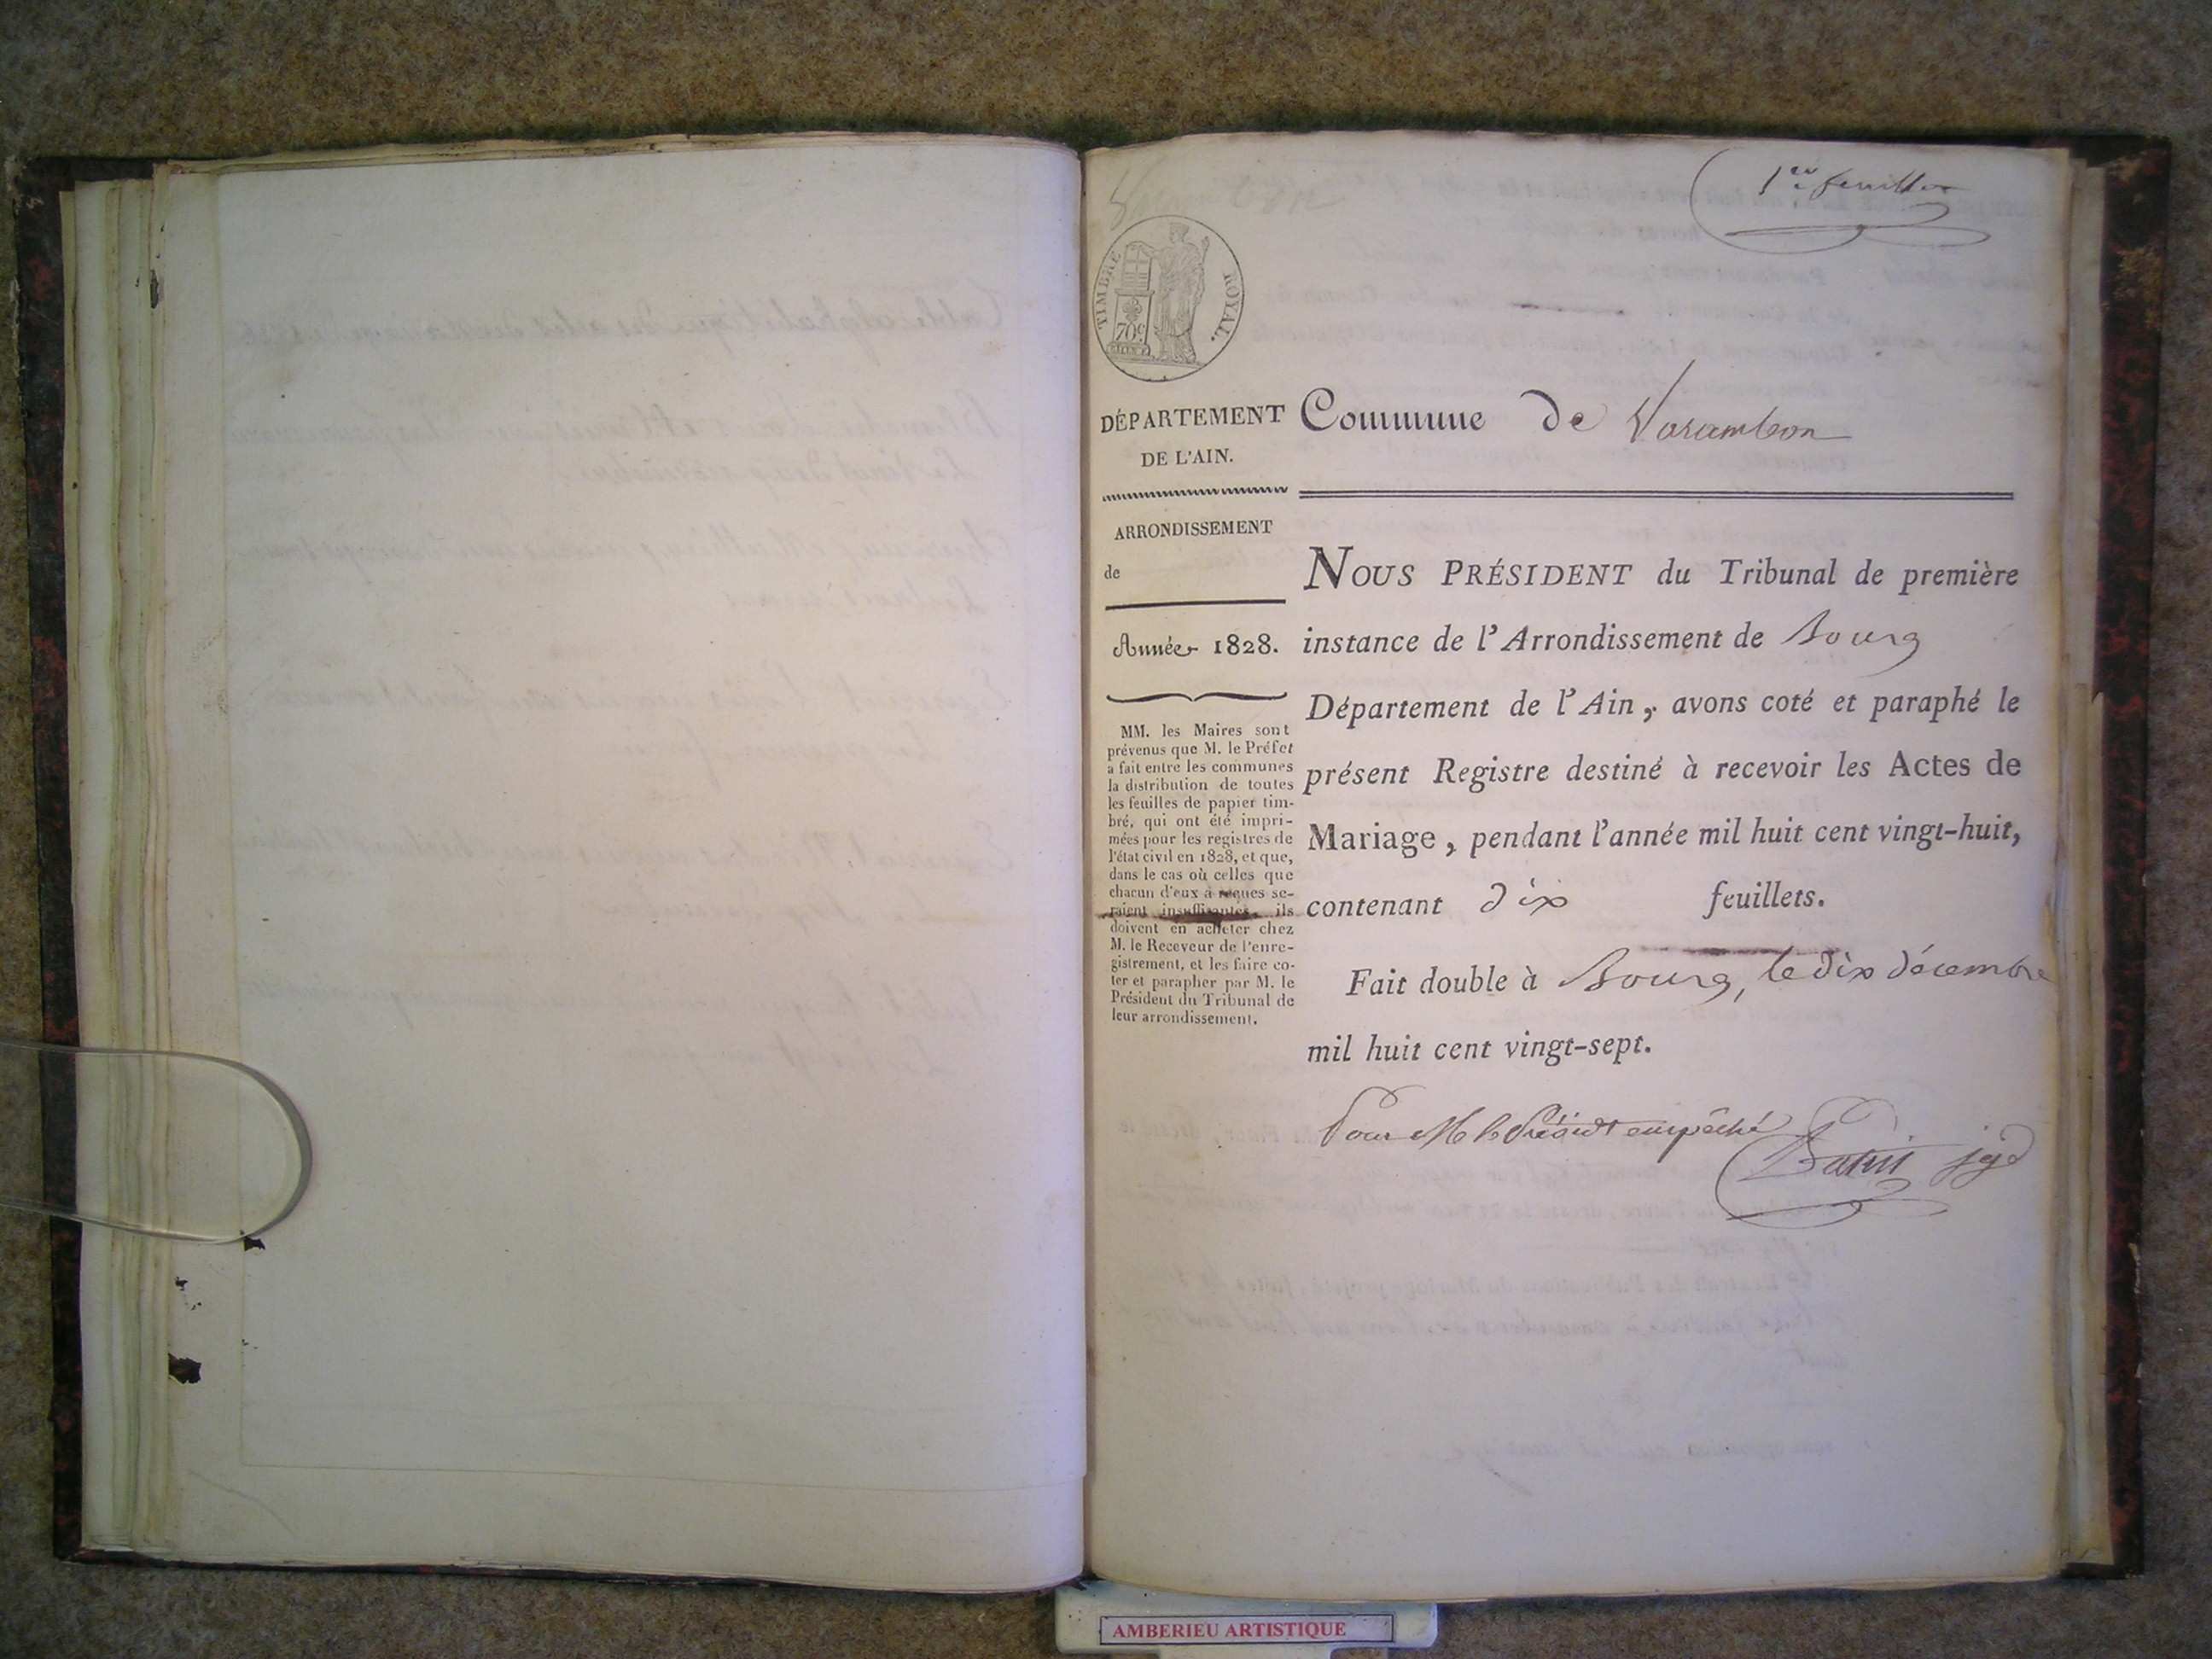 1er feuillet
TIMBRE ROYAL.
70c
DÉPARTEMENT
DE L'AIN.
Commune de Varambon
ARRONDISSEMENT
de
Année 1828.
MM. les Maires sont
prévenus que M. le Préfet
a fait entre les communes
la distribution de toutes
les feuilles de papier tim-
bré, qui ont été impri-
mées pour les registres de
l'état civil en 1828, et que,
dans le cas où celles que
chacun d'eux a reçues se-
raient insuffisantes, ils
doivent en acheter chez
M. le Receveur de l'enre-
gistrement, et les faire co-
ter et parapher par M. le
Président du Tribunal de
leur arrondissement.
NOUS PRÉSIDENT du Tribunal de première
instance de l'Arrondissement de Bourg
Département de l'Ain, avons coté et paraphé le
présent Registre destiné à recevoir les Actes de
Mariage, pendant l'année mil huit cent vingt-huit,
contenant dix feuillets.
Fait double à Bourg, le dix décembre
mil huit cent vingt-sept.
Pour M. le Présidt empêché
AMBERIEU ARTISTIQUE